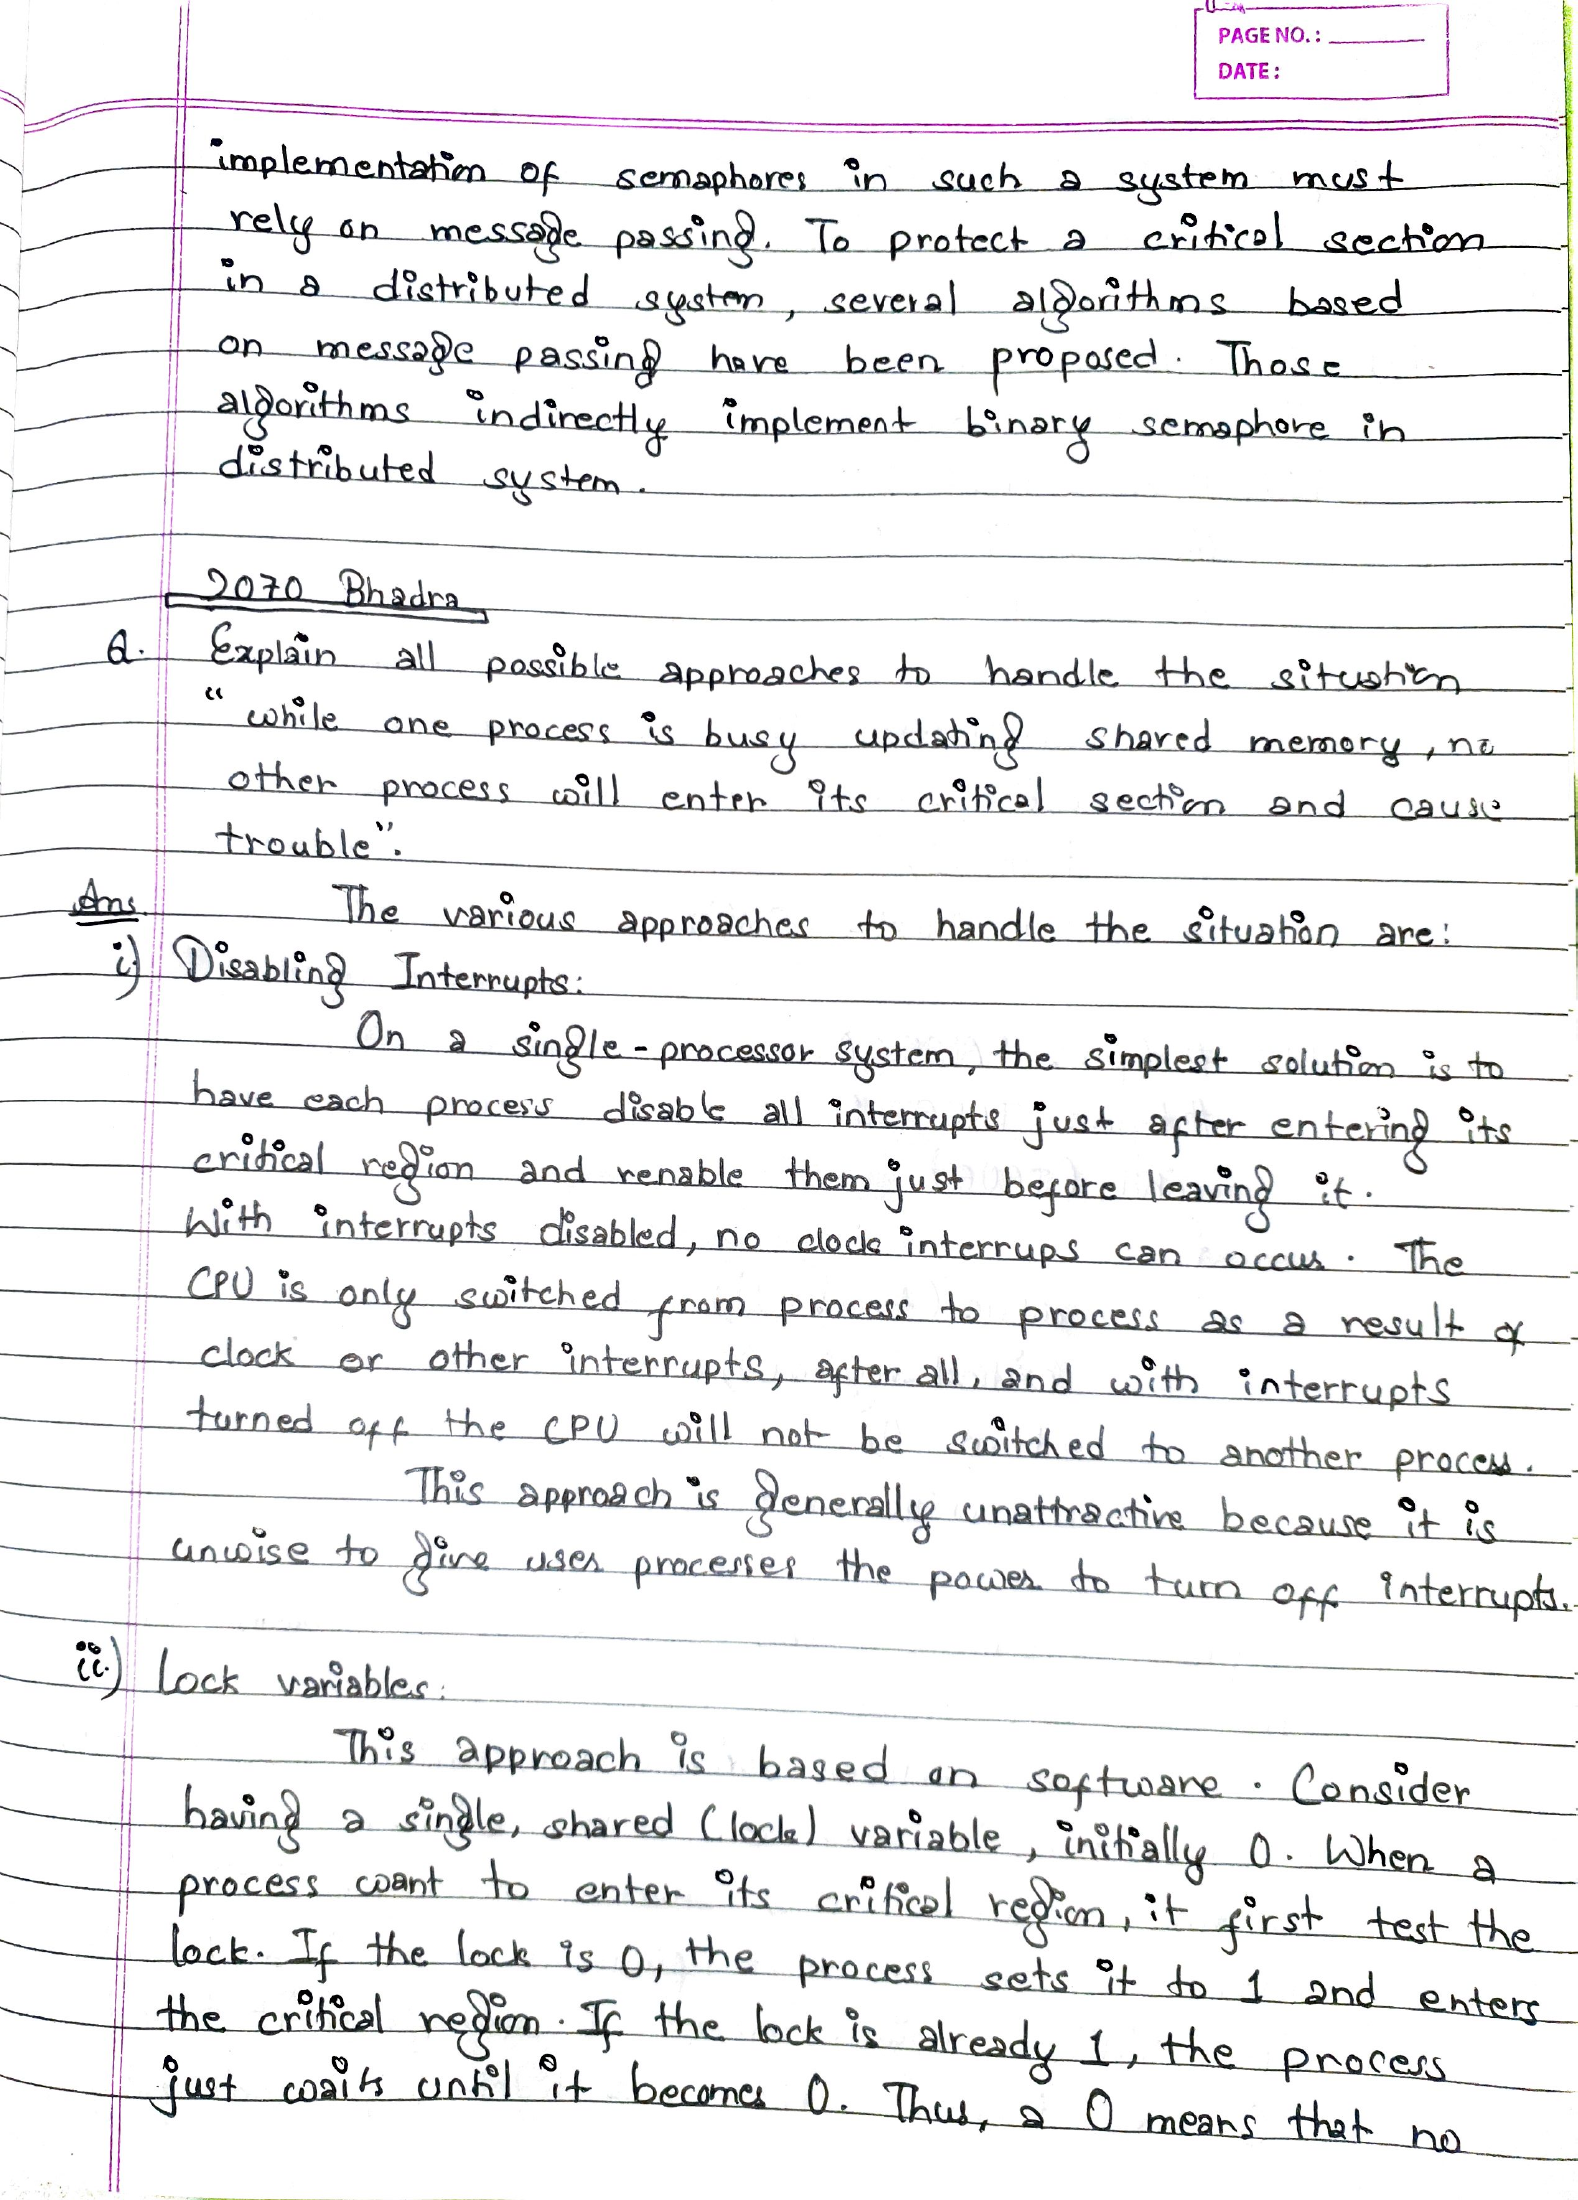 PAGE NO.:
DATE:
implementation of semaphores in such a system must
rely on message passing. To protect a critical section
in a distributed system, several algorithms based
on message passing have been proposed. Those
algorithms indirectly implement binary semaphore in
distributed system.
2070 Bhadra
Q. Explain all possible approaches to handle the situation
"while one process is busy updating shared memory, no
other process will enter its critical section and cause
trouble".
Ans. The various approaches to handle the situation are:
i) Disabling Interrupts:
On a single-processor system, the simplest solution is to
have each process disable all interrupts just after entering its
critical region and renable them just before leaving it.
With interrupts disabled, no clock interrups can occur. The
CPU is only switched from process to process as a result of
clock or other interrupts, after all, and with interrupts
turned off the CPU will not be switched to another process.
This approach is generally unattractive because it is
unwise to give user processes the power to turn off interrupts.
ii.) Lock variables:
This approach is based on software. Consider
having a single, shared (lock) variable, initially 0. When a
process want to enter its critical region, it first test the
lock. If the lock is 0, the process sets it to 1 and enters
the critical region. If the lock is already 1, the process
just waits until it becomes 0. Thus, a 0 means that no